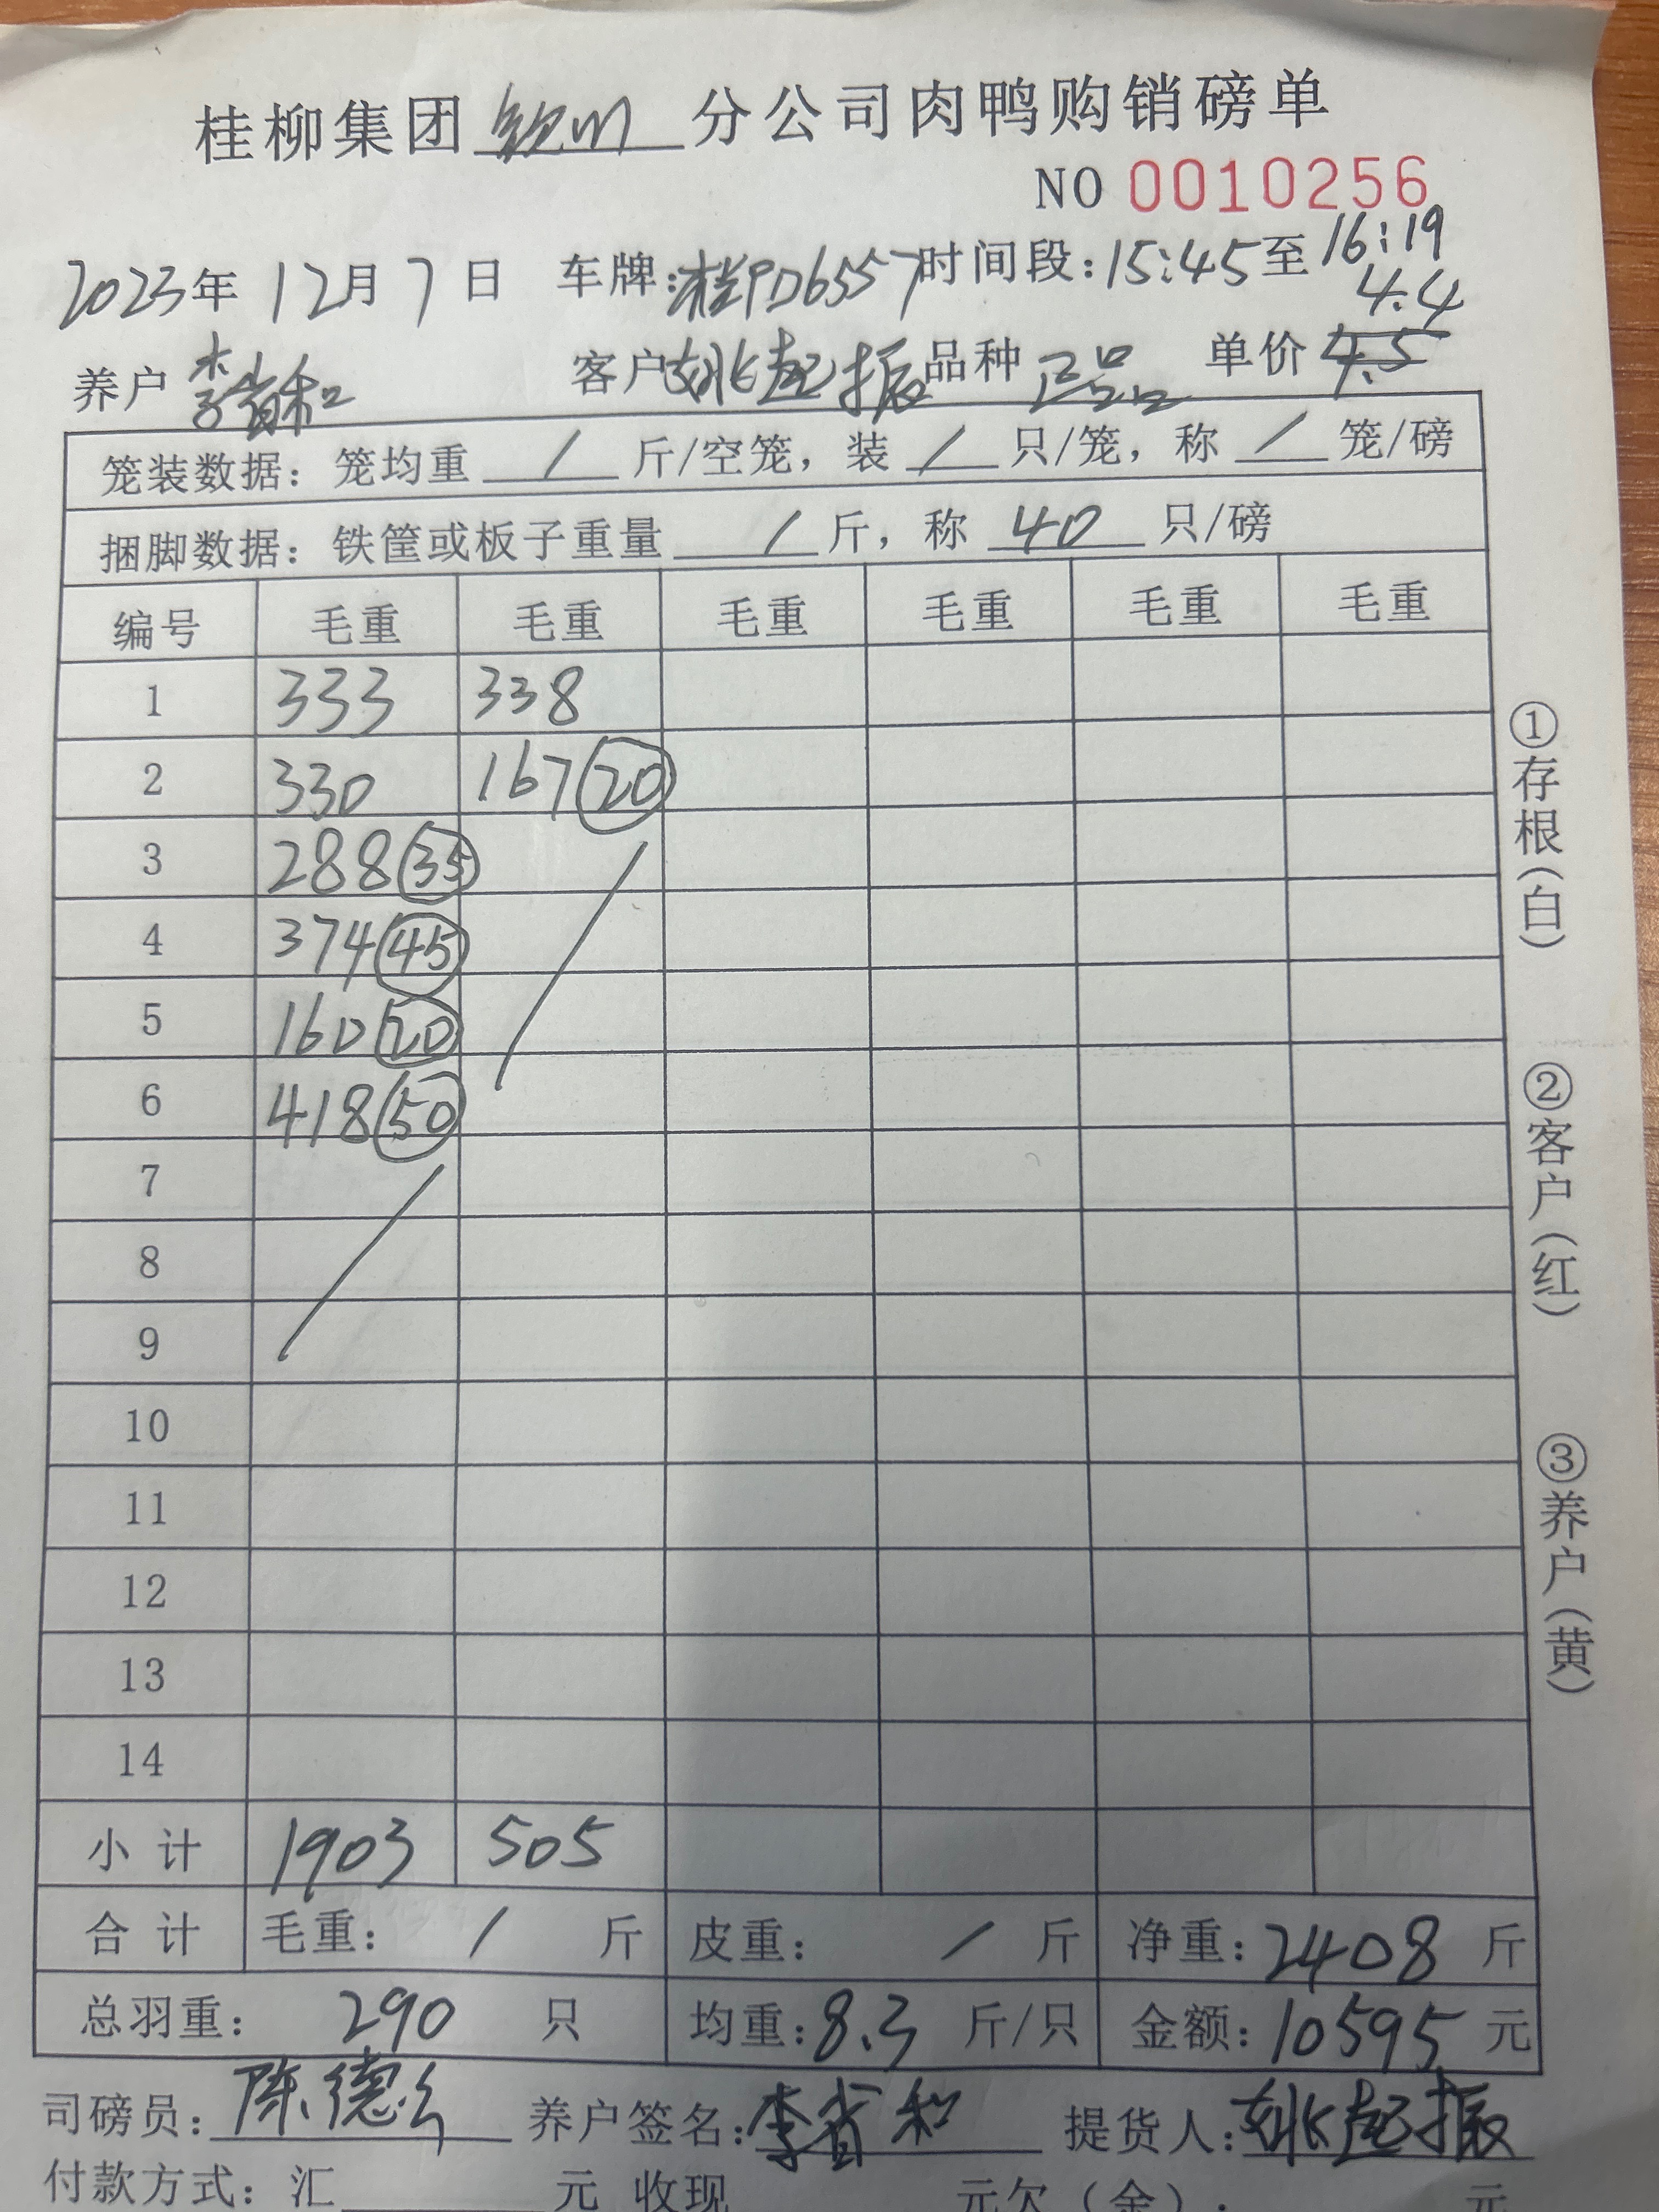 桂柳集团 钦州 分公司肉鸭购销磅单
NO 0010256
2023年 12月 7日 车牌:桂PD6557 时间段:15:45至 16:19
4.4
养户 李省和 客户 姚起振 品种 正品 单价 4.5
笼装数据: 笼均重 / 斤/空笼, 装 / 只/笼, 称 / 笼/磅
捆脚数据: 铁筐或板子重量 / 斤, 称 40 只/磅
编号 毛重 毛重 毛重 毛重 毛重 毛重
1 333 338
2 330 167 20
3 288 35
4 374 45
5 160 20
6 418 50
7
8
9
10
11
12
13
14
小计 1903 505
合计 毛重: / 斤 皮重: / 斤 净重: 2408 斤
总羽重: 290 只 均重: 8.3 斤/只 金额: 10595 元
司磅员: 陈德 养户签名: 李省和 提货人: 姚起振
付款方式: 汇 元 收现 元欠(余): 元
①存根(白)
②客户(红)
③养户(黄)